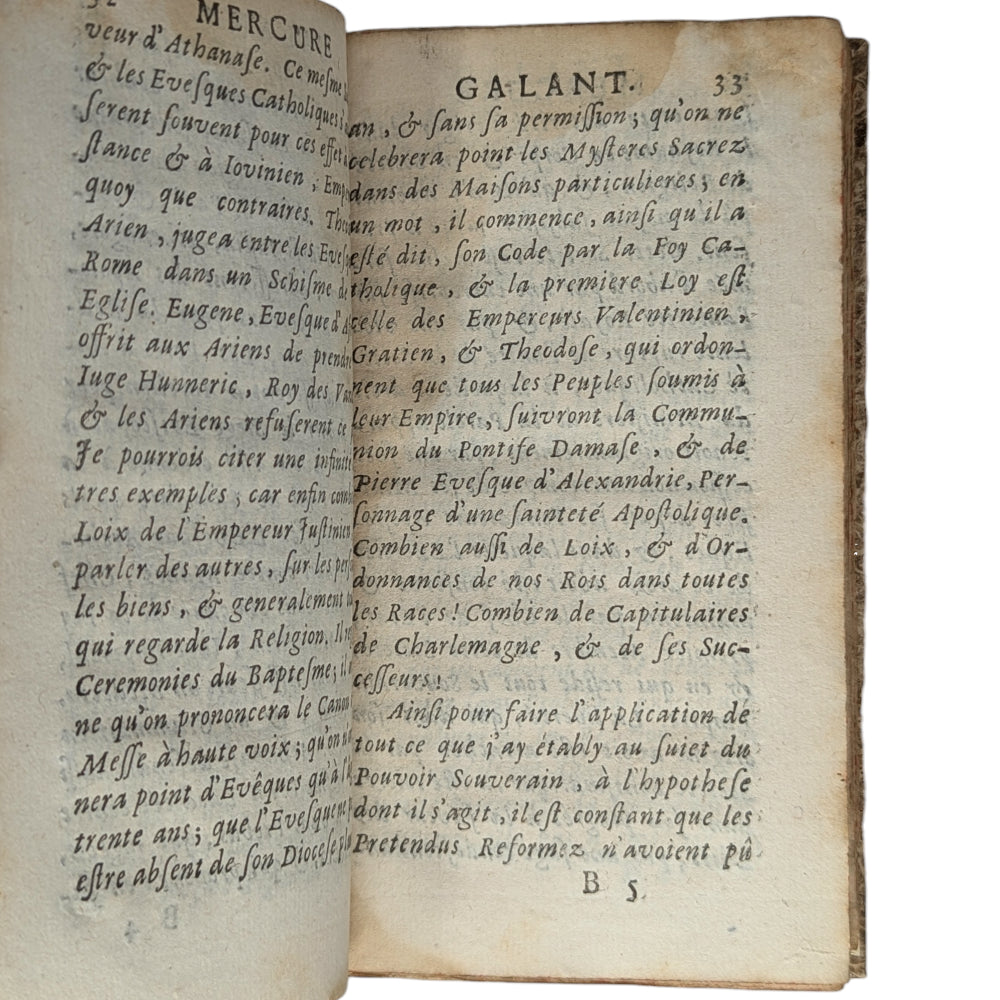 32
MERCURE
veur d'Athanaſe. Ce meſme
& les Eveſques Catholiques
ſerent ſouvent pour ces effet
ſtance & à Iovinien, Emp
quoy que contraires. Theo
Arien, jugea entre les Eveſq
Rome dans un Schiſme de
Egliſe. Eugene, Eveſque d'A
offrit aux Ariens de prendre
Iuge Hunneric, Roy des Va
& les Ariens refuſerent ce
Je pourrois citer une infinité
tres exemples; car enfin com
Loix de l'Empereur Juſtinien
parler des autres, ſur les perſ
les biens, & generalement
qui regarde la Religion. Il
Ceremonies du Bapteſme; il
ne qu'on prononcera le Canon
Meſſe à haute voix; qu'on
nera point d'Evêques qu'à l'â
trente ans; que l'Eveſque ne
eſtre abſent de ſon Dioceſe pl
GALANT. 33
an, & ſans ſa permiſſion; qu'on ne
celebrera point les Myſteres Sacrez
dans des Maiſons particulieres; en
un mot, il commence, ainſi qu'il a
eſté dit, ſon Code par la Foy Ca-
tholique, & la premiere Loy eſt
celle des Empereurs Valentinien,
Gratien, & Theodoſe, qui ordon-
nent que tous les Peuples ſoumis à
leur Empire, ſuivront la Commu-
nion du Pontife Damaſe, & de
Pierre Eveſque d'Alexandrie, Per-
ſonnage d'une ſainteté Apoſtolique.
Combien auſſi de Loix, & d'Or-
donnances de nos Rois dans toutes
les Races! Combien de Capitulaires
de Charlemagne, & de ſes Suc-
ceſſeurs!
Ainſi pour faire l'application de
tout ce que j'ay étably au ſuiet du
Pouvoir Souverain, à l'hypotheſe
dont il s'agit, il eſt conſtant que les
Pretendus Reformez n'avoient pû
B 5